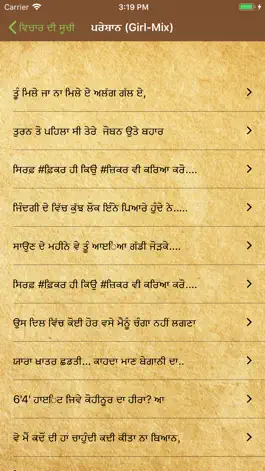 Carrier 3:19 PM
ਵਿਚਾਰ ਦੀ ਸੂਚੀ ਪਰੇਸ਼ਾਨ (Girl-Mix)
ਤੂੰ ਮਿਲੇ ਜਾ ਨਾ ਮਿਲੇ ਏ ਅਲੱਗ ਗੱਲ ਏ,
ਤੁਰਨ ਤੋ ਪਹਿਲਾ ਸੀ ਤੇਰੇ ਜੋਬਨ ਉਤੇ ਬਹਾਰ
ਸਿਰਫ਼ #ਫ਼ਿਕਰ ਹੀ ਕਿਉ #ਜ਼ਿਕਰ ਵੀ ਕਰਿਆ ਕਰੋ....
ਜਿੰਦਗੀ ਦੇ ਵਿੱਚ ਕੁੱਝ ਲੋਕ ਇੰਨੇ ਪਿਆਰੇ ਹੁੰਦੇ ਨੇ.....
ਸਾਉਣ ਦੇ ਮਹੀਨੇ ਵੇ ਤੂੰ ਆਇਆ ਗੱਡੀ ਜੋੜਕੇ....
ਸਿਰਫ਼ #ਫ਼ਿਕਰ ਹੀ ਕਿਉ #ਜ਼ਿਕਰ ਵੀ ਕਰਿਆ ਕਰੋ....
ਉਸ ਦਿਲ ਵਿੱਚ ਕੋਈ ਹੋਰ ਵਸੇ ਮੈਨੂੰ ਚੰਗਾ ਨਹੀਂ ਲਗਣਾ
ਯਾਰਾ ਖਾਤਰ ਛਡਤੀ... ਕਾਹਦਾ ਮਾਣ ਬੇਗਾਨੀ ਦਾ..
6'4' ਹਾਇਟ ਜਿਵੇ ਕੋਹੀਨੂਰ ਦਾ ਹੀਰਾ? ਆ
ਵੋ ਮੈਂ ਕਦੋਂ ਦੀ ਹਾਂ ਚਾਹੁੰਦੀ ਕਦੀ ਕੀਤਾ ਨਾ ਬਿਆਨ,